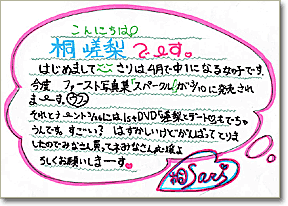 こんにちは
桐 嵯梨 でーす。
はじめまして さりは4月で中1になる女の子です。
今度、ファースト写真集「スパークル」が 3/10に発売され
まーす。
それとナ、ント には1stDVD「嵯梨とデート」もでちゃ
うんです。すごーい? はずかしいけどがんばってとりま
したのでみなさん買って みなさん
ろしくお願いしまーす
桐 Sari